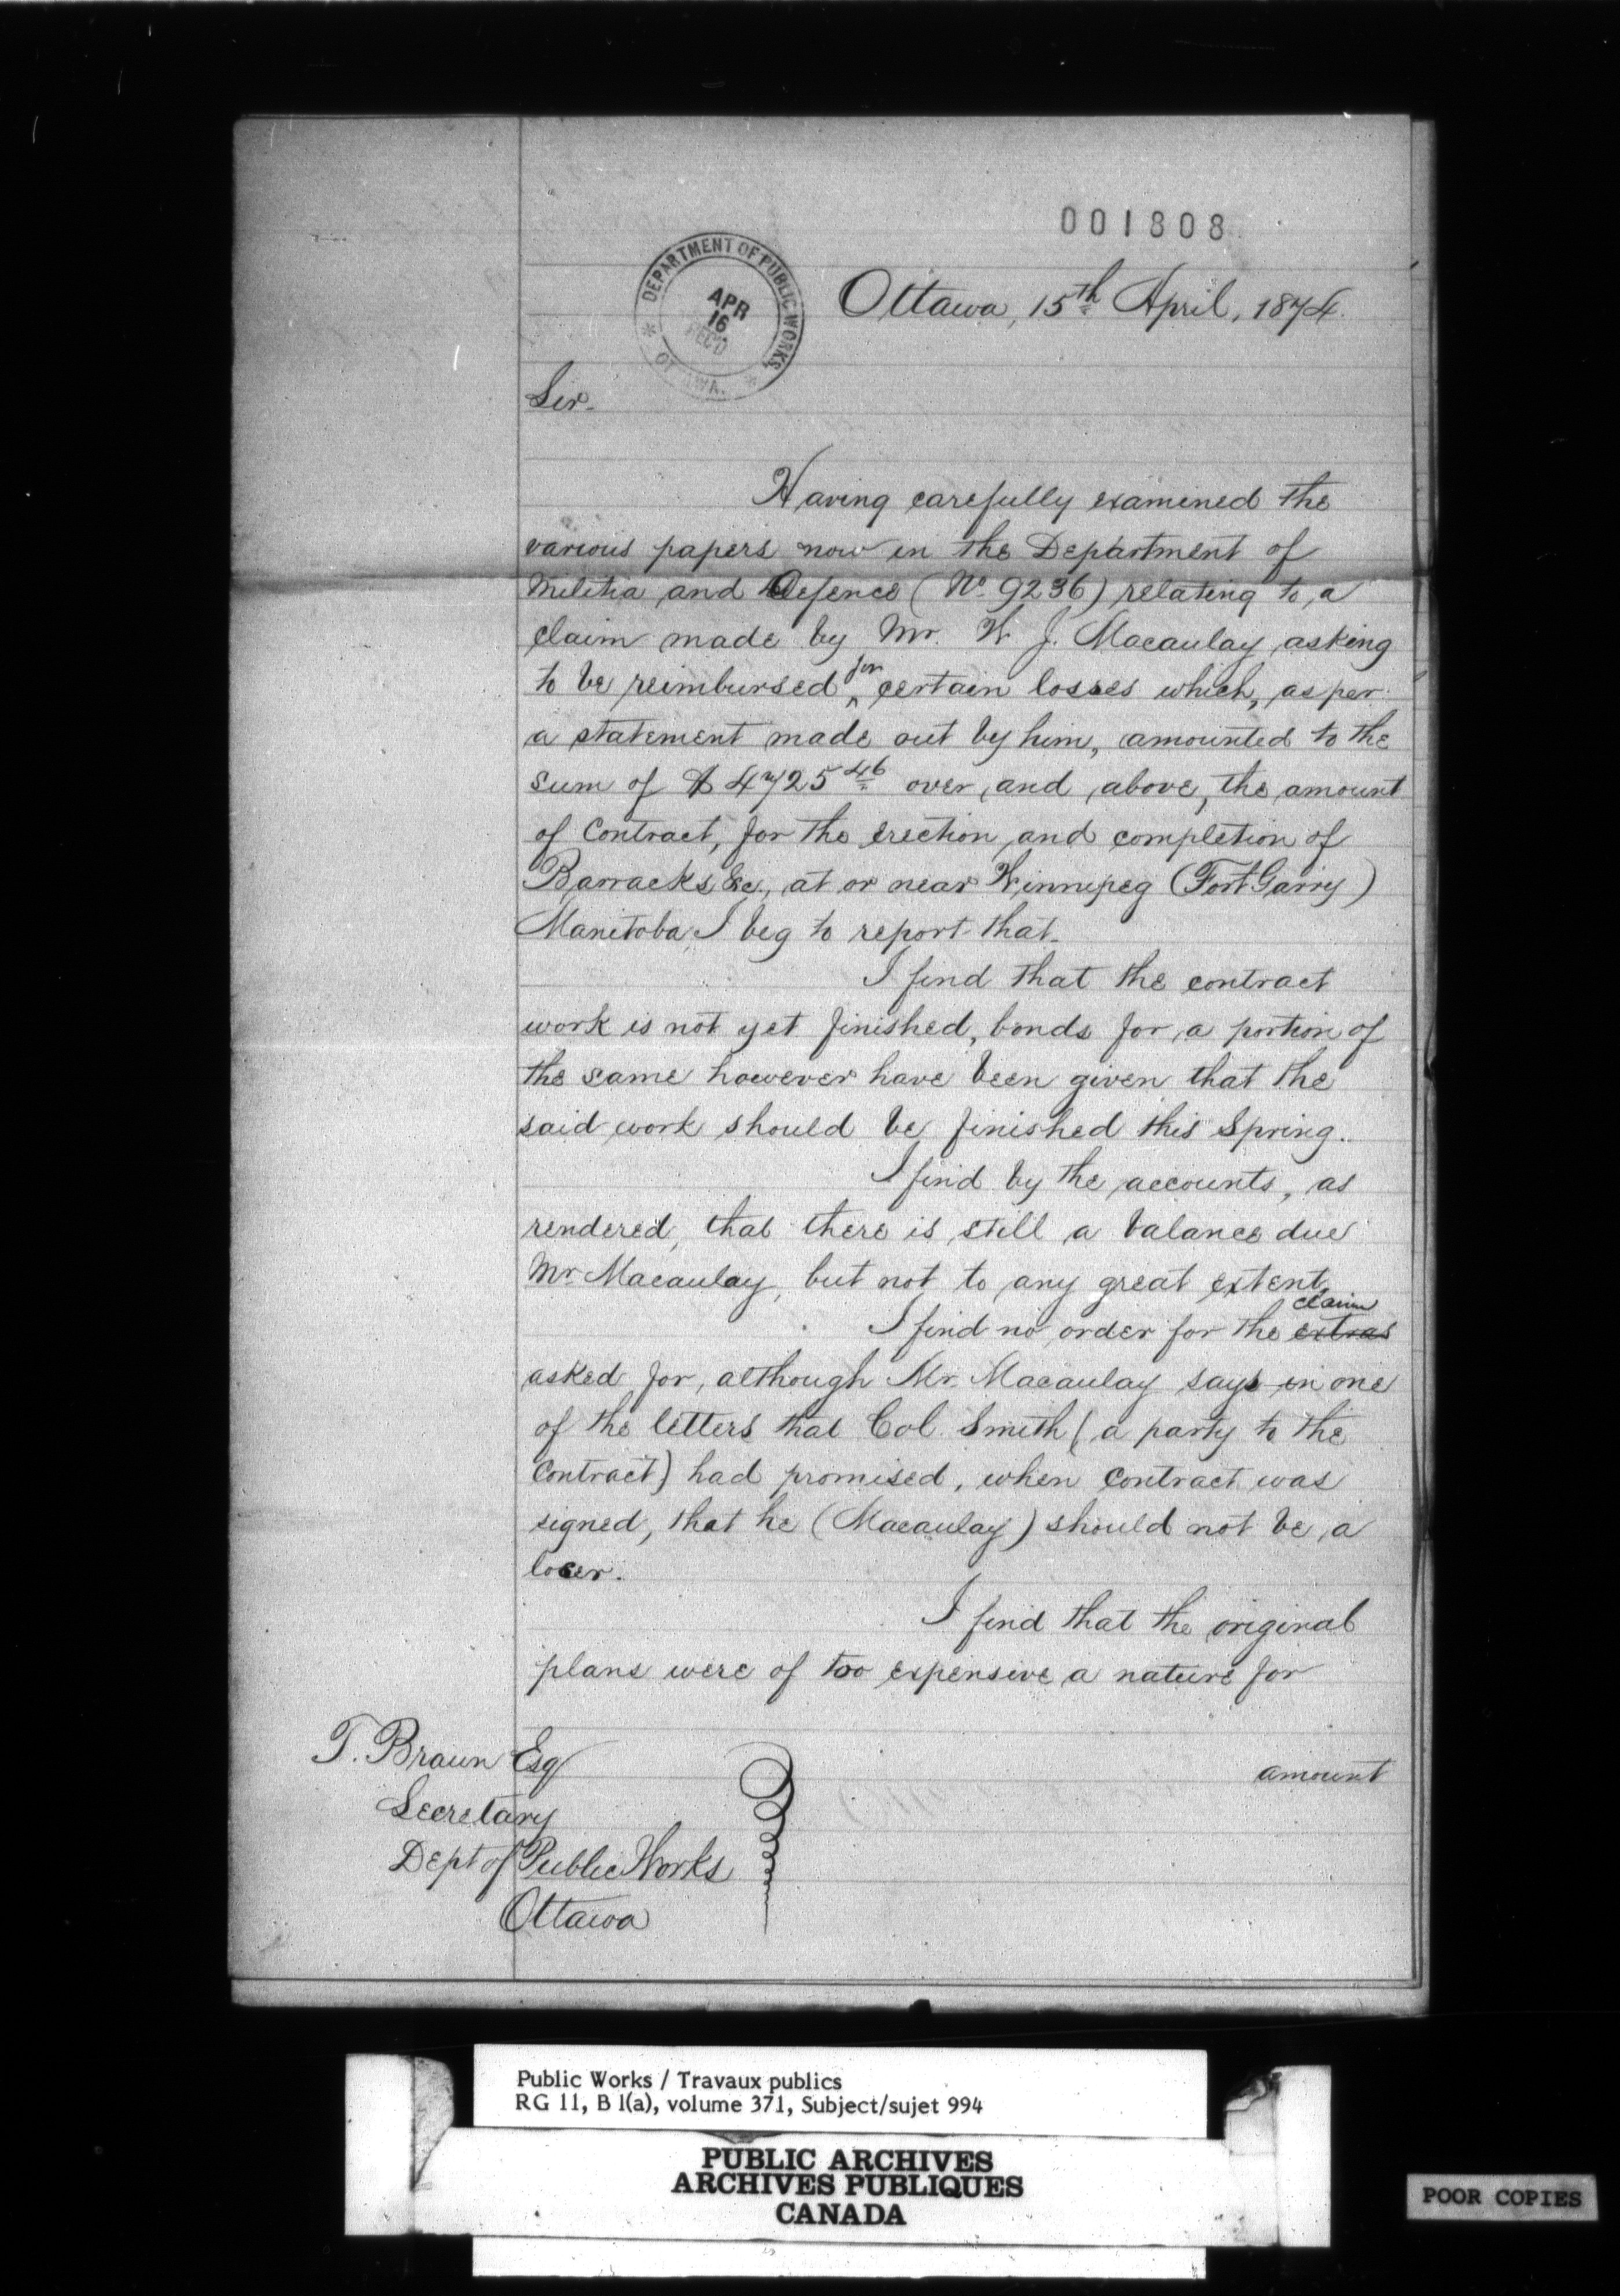 001808
DEPARTMENT OF PUBLIC WORKS,
APR
16
REC'D
OTTAWA.
Ottawa, 15th April, 1874.
Sir.
Having carefully examined the
various papers now in the Department of
Militia and Defence (No 9236) relating to a
claim made by Mr. W. J. Macaulay asking
to be reimbursed for certain losses which, as per
a statement made out by him, amounted to the
sum of $4725 46 over and above, the amount
of Contract, for the erection and completion of
Barracks &c., at or near Winnipeg (Fort Garry)
Manitoba, I beg to report that.
I find that the contract
work is not yet finished, bonds for a portion of
the same however have been given that the
said work should be finished this Spring.
I find by the accounts, as
rendered, that there is still a balance due
Mr Macaulay, but not to any great extent.
claim
I find no order for the extras
asked for, although Mr. Macaulay says in one
of the letters that Col. Smith (a party to the
Contract) had promised, when contract was
signed, that he (Macaulay) should not be a
loser.
I find that the original
plans were of too expensive a nature for
amount
T. Braun Esq
Secretary
Dept of Public Works
Ottawa
Public Works / Travaux publics
RG 11, B 1(a), volume 371, Subject/sujet 994
PUBLIC ARCHIVES
ARCHIVES PUBLIQUES
CANADA
POOR COPIES